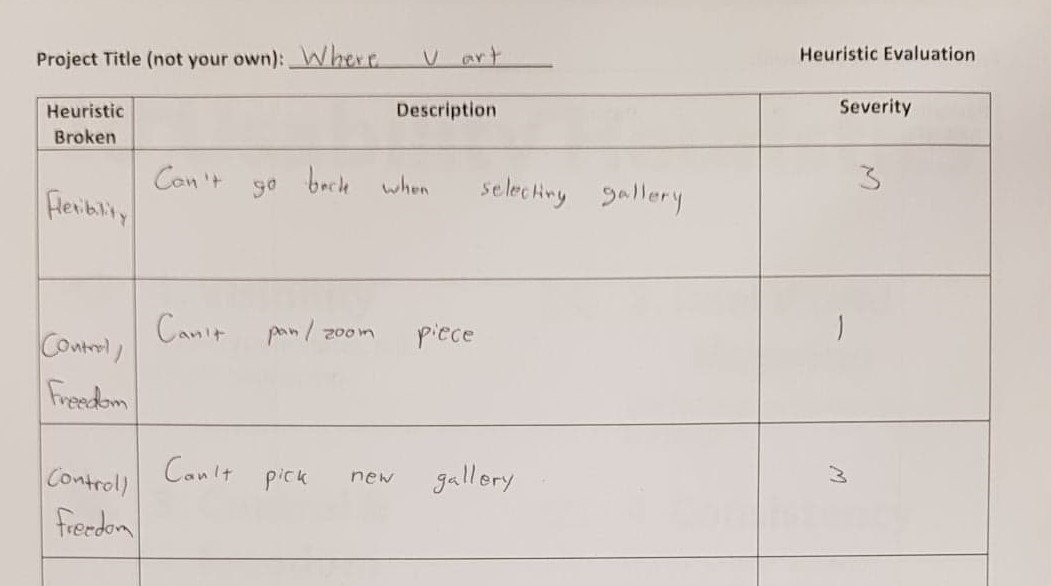 Project Title (not your own): Where U art
Heuristic Evaluation
Heuristic Broken
Description
Severity
Flexibility
Can't go back when selecting gallery
3
Control,
Freedom
Can't pan/zoom piece
1
Control,
Freedom
Can't pick new gallery
3